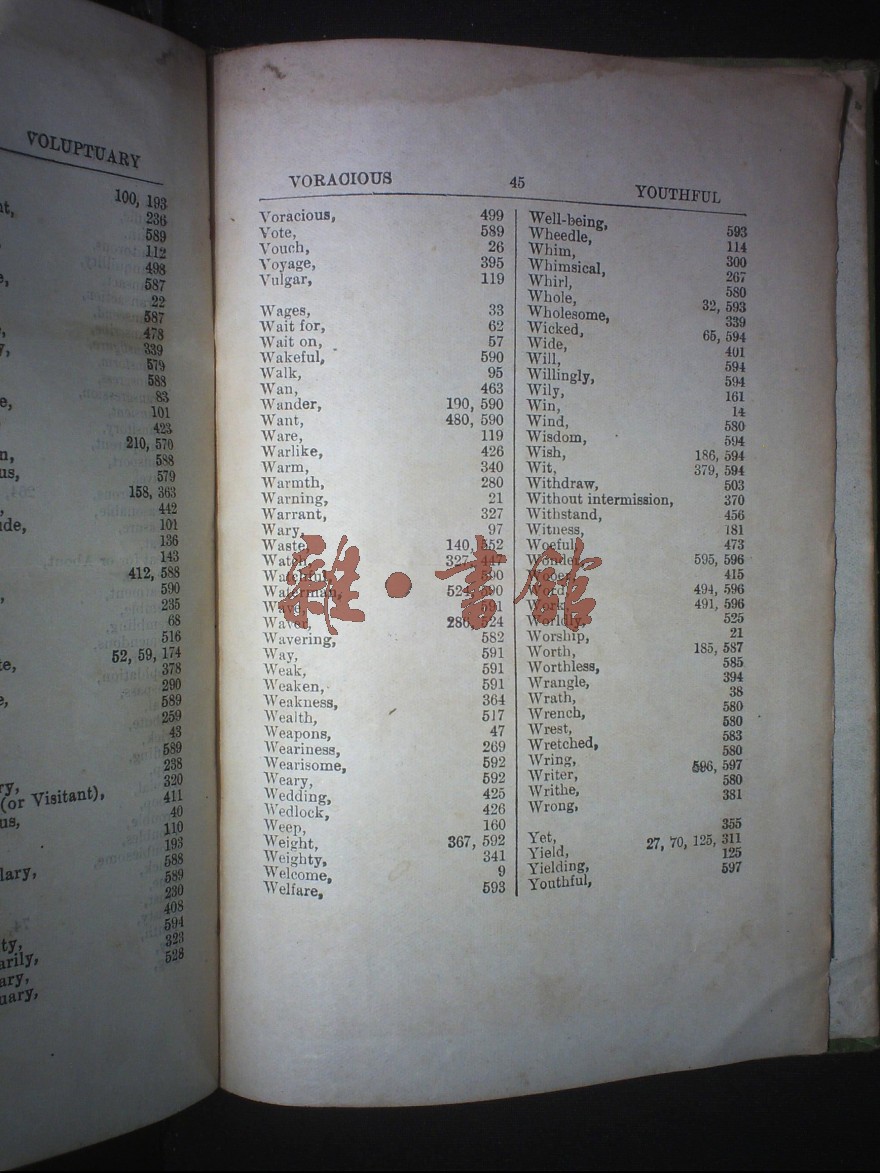 VOLUPTUARY
100, 193
236
589
112
498
587
22
587
478
339
579
588
83
101
423
210, 570
588
579
158, 363
442
101
136
143
412, 588
590
235
68
516
52, 59, 174
378
290
589
259
43
589
238
320
(or Visitant), 411
40
110
193
588
589
230
408
594
323
528
VORACIOUS 45 YOUTHFUL
Voracious, 499
Vote, 589
Vouch, 26
Voyage, 395
Vulgar, 119
Wages, 33
Wait for, 62
Wait on, 57
Wakeful, 590
Walk, 95
Wan, 463
Wander, 190, 590
Want, 480, 590
Ware, 119
Warlike, 426
Warm, 340
Warmth, 280
Warning, 21
Warrant, 327
Wary, 97
Waste, 140, 552
Watch, 327, 447
Watchful, 590
Waterman, 524, 590
Wave, 591
Waver, 286, 524
Wavering, 582
Way, 591
Weak, 591
Weaken, 591
Weakness, 364
Wealth, 517
Weapons, 47
Weariness, 269
Wearisome, 592
Weary, 592
Wedding, 425
Wedlock, 426
Weep, 160
Weight, 367, 592
Weighty, 341
Welcome, 9
Welfare, 593
Well-being, 593
Wheedle, 114
Whim, 300
Whimsical, 267
Whirl, 580
Whole, 32, 593
Wholesome, 339
Wicked, 65, 594
Wide, 401
Will, 594
Willingly, 594
Wily, 161
Win, 14
Wind, 580
Wisdom, 594
Wish, 186, 594
Wit, 379, 594
Withdraw, 503
Without intermission, 370
Withstand, 456
Witness, 181
Woeful, 473
Wonder, 595, 596
Wooer, 415
Word, 494, 596
Work, 491, 596
Worldly, 525
Worship, 21
Worth, 185, 587
Worthless, 585
Wrangle, 394
Wrath, 38
Wrench, 580
Wrest, 580
Wretched, 583
Wring, 580
Writer, 596, 597
Writhe, 580
Wrong, 381
Yet, 355
Yield, 27, 70, 125, 311
Yielding, 125
Youthful, 597
雜·書館